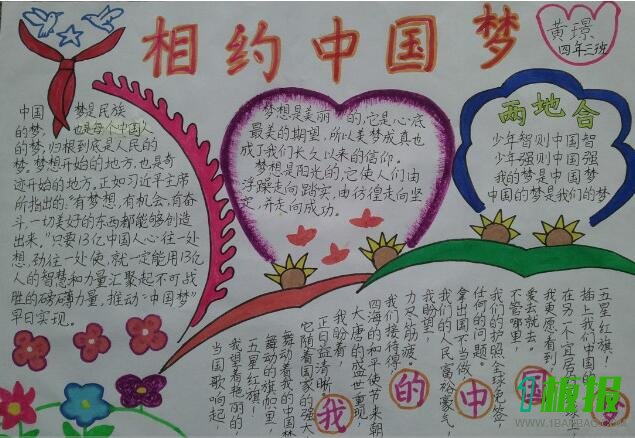 相约中国梦
黄璟
四年三班
中国 梦是民族
的梦，也是每个中国人
的梦，归根到底是人民的
梦。梦想开始的地方，也是奇
迹开始的地方，正如习近平主席
所指出的："有梦想，有机会，有奋
斗，一切美好的东西都能够创造
出来。"只要13亿中国人心往一处
想，劲往一处使，就一定能用13亿
人的智慧和力量汇聚起不可战
胜的磅礴力量，推动"中国梦"
早日实现。
梦想是美丽 的，它是心底
最美的期望，所以美梦成真也
成了我们长久以来的信仰。
梦想是阳光的，它使人们由
浮躁走向踏实，由彷徨走向坚
定，并走向成功。
两地合
少年智则中国智
少年强则中国强
我的梦是中国梦
中国的梦是我们的梦
当国歌响起，
我望着艳丽的
五星红旗！
舞动的旗帜里，
舞动着我的中国梦
它随着国家的强大
正日益清晰
我盼着，
大唐的盛世重现，
四海的和平使节来朝
我们接待得
力尽筋疲。
我盼望，
我们的人民富裕豪气，
拿出国不当做
任何的问题。
我们的护照，全球免签，
不管哪里，
爱去就去。
我更愿看到
在另一个宜居的
插上我们中国的
五星红旗，
我的中国
1板报
WWW.1BANBAO.COM